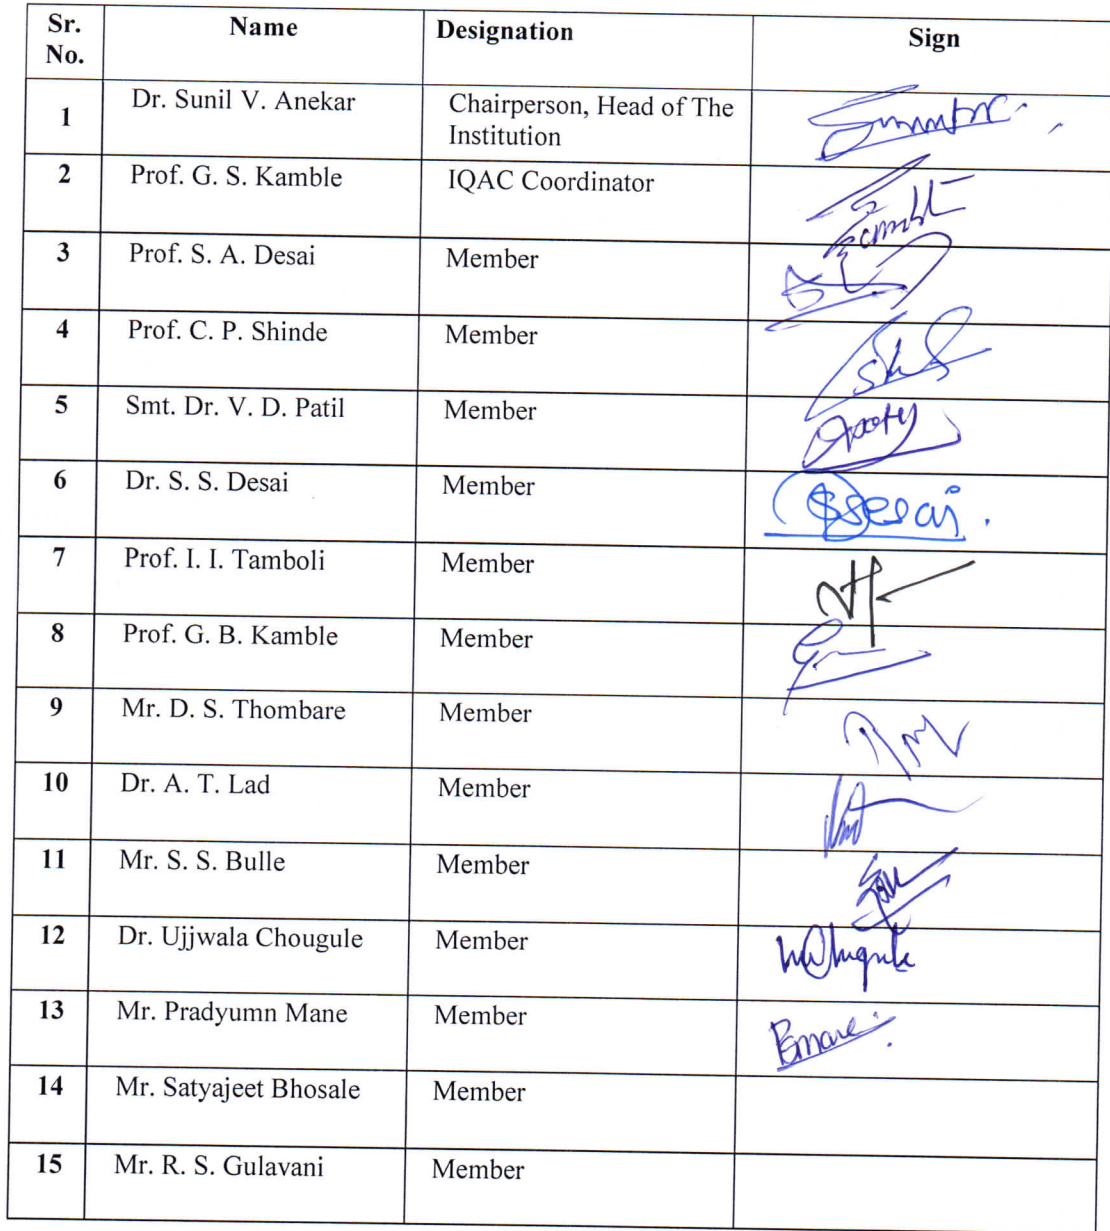 Sr. No. Name Designation Sign
1 Dr. Sunil V. Anekar Chairperson, Head of The Institution
2 Prof. G. S. Kamble IQAC Coordinator
3 Prof. S. A. Desai Member
4 Prof. C. P. Shinde Member
5 Smt. Dr. V. D. Patil Member
6 Dr. S. S. Desai Member SSDesai.
7 Prof. I. I. Tamboli Member
8 Prof. G. B. Kamble Member
9 Mr. D. S. Thombare Member
10 Dr. A. T. Lad Member
11 Mr. S. S. Bulle Member
12 Dr. Ujjwala Chougule Member
13 Mr. Pradyumn Mane Member Pmane
14 Mr. Satyajeet Bhosale Member
15 Mr. R. S. Gulavani Member